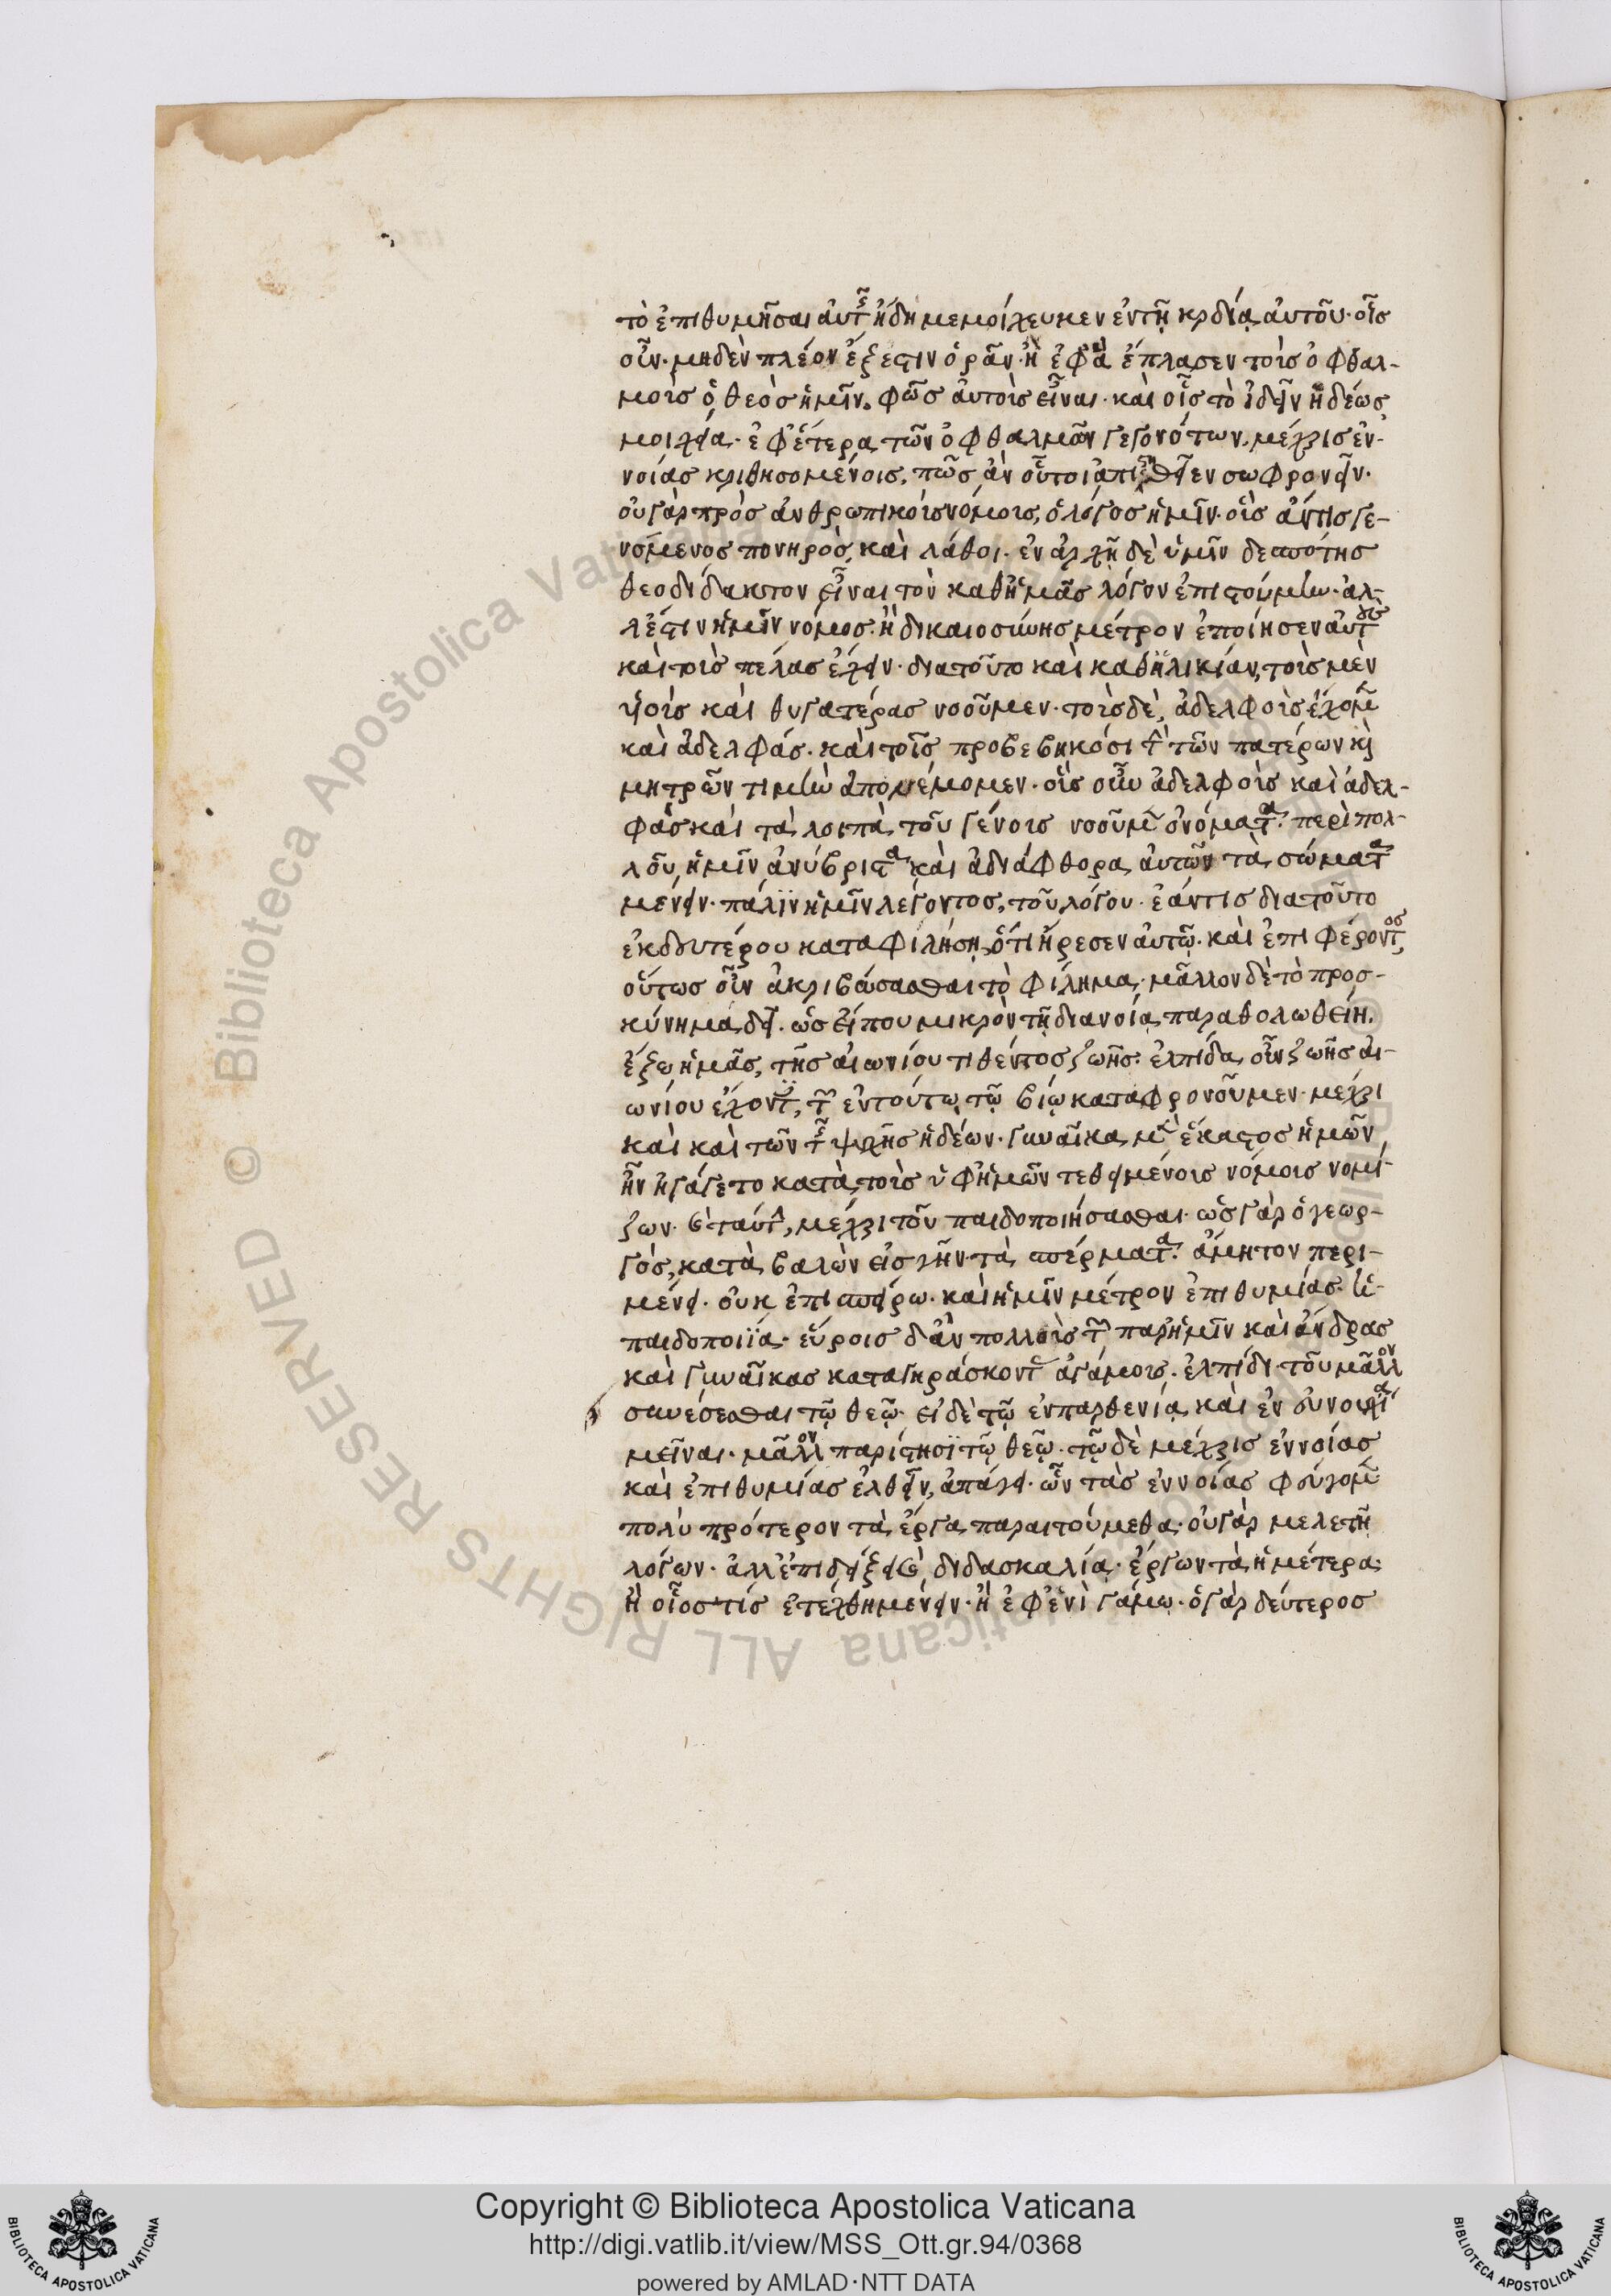 τὸ ἐπιθυμῆσαι αὐτῆς ἤδη μεμοίχευκεν ἐν τῇ καρδίᾳ αὐτοῦ· οἷς
οὖν· μηδὲν πλέον ἔξεστιν ὁρᾶν· ἢ ἐφ' ἃ ἔπλασεν τοὺς ὀφθαλ-
μοὺς ὁ θεὸς ἡμῖν. φῶς αὐτοὺς εἶναι· καὶ οἷς τὸ ἰδεῖν ἡδέως
μοιχεία· ἐφ' ἕτερα τῶν ὀφθαλμῶν γεγονότων. μέχρις ἐν-
νοίας κριθησομένοις. πῶς ἂν οὗτοι ἀπιστηθεῖεν σωφρονεῖν·
οὐ γὰρ πρὸς ἀνθρωπικοὺς νόμους, ὁ λόγος ἡμῖν· οὓς ἄν τις γε-
νόμενος πονηρὸς, καὶ λάθοι· ἐν ἀρχῇ δὲ ὑμῖν δεσπότης
θεοδίδακτον εἶναι τὸν καθ' ἡμᾶς λόγον ἐπιστούμην· ἀλ-
λ' ἔστιν ἡμῖν νόμος. ἢ δικαιοσύνης μέτρον ἐποίησεν αὐτοὺς
καὶ τοὺς πέλας ἔχειν· διατοῦτο καὶ καθ' ἡλικίαν, τοὺς μὲν
υἱοὺς καὶ θυγατέρας νοοῦμεν· τοὺς δὲ, ἀδελφοὺς ἔχομεν
καὶ ἀδελφάς· καὶ τοῖς προβεβηκόσι τὴν τῶν πατέρων καὶ
μητρῶν τιμὴν ἀπονέμομεν· οὓς οὖν ἀδελφοὺς καὶ ἀδελ-
φὰς καὶ τὰ λοιπὰ τοῦ γένους νοοῦμεν ὀνόματα. περὶ πολ-
λοῦ, ἡμῖν ἀνύβριστα καὶ ἀδιάφθορα αὐτῶν τὰ σώματα
μένειν· πάλιν ἡμῖν λέγοντος, τοῦ λόγου· ἐάν τις διατοῦτο
ἐκ δευτέρου καταφιλήσῃ, ὅτι ἤρεσεν αὐτῷ· καὶ ἐπιφέροντος,
οὕτως οὖν ἀκριβώσασθαι τὸ φίλημα· μᾶλλον δὲ τὸ προσ-
κύνημα δεῖ· ὡς εἴ που μικρὸν τῇ διανοίᾳ παραθολωθείη.
ἔξω ἡμᾶς, τῆς αἰωνίου τιθέντος ζωῆς· ἐλπίδα οὖν ζωῆς αἰ-
ωνίου ἔχοντες, τῶν ἐν τούτῳ τῷ βίῳ καταφρονοῦμεν· μέχρι
καὶ καὶ τῶν τῆς ψυχῆς ἡδέων· γυναῖκα μὲν ἕκαστος ἡμῶν
ἣν ἠγάγετο κατὰ τοὺς ὑφ' ἡμῶν τεθειμένους νόμους νομί-
ζων· ἐ ταύτην, μέχρι τοῦ παιδοποιήσασθαι· ὡς γὰρ ὁ γεωρ-
γός, καταβαλὼν εἰς γῆν τὰ σπέρματα. ἄμητον περι-
μένει· οὐκ ἐπισπείρω. καὶ ἡμῖν μέτρον ἐπιθυμίας· ἡ
παιδοποιΐα· εὕροις δ' ἂν πολλοὺς τῶν παρ' ἡμῖν καὶ ἄνδρας
καὶ γυναῖκας καταγηράσκοντας ἀγάμους. ἐλπίδι τοῦ μᾶλλον
συνέσεσθαι τῷ θεῷ· εἰ δὲ τῷ ἐν παρθενίᾳ καὶ ἐν εὐνουχίᾳ
μεῖναι. μᾶλλον παρίστησι τῷ θεῷ· τῷ δὲ μέχρις ἐννοίας
καὶ ἐπιθυμίας ἐλθεῖν, ἀπάγει· ὧν τὰς ἐννοίας φεύγομεν
πολὺ πρότερον τὰ ἔργα παραιτούμεθα· οὐ γὰρ μελετῇ
λόγων· ἀλλ' ἐπιδείξει καὶ διδασκαλίᾳ· ἔργων τὰ ἡμέτερα·
ἢ οἷος τις ἐτέχθη μένειν· ἢ ἐφ' ἑνὶ γάμῳ· ὁ γὰρ δεύτερος
Copyright © Biblioteca Apostolica Vaticana
http://digi.vatlib.it/view/MSS_Ott.gr.94/0368
powered by AMLAD·NTT DATA